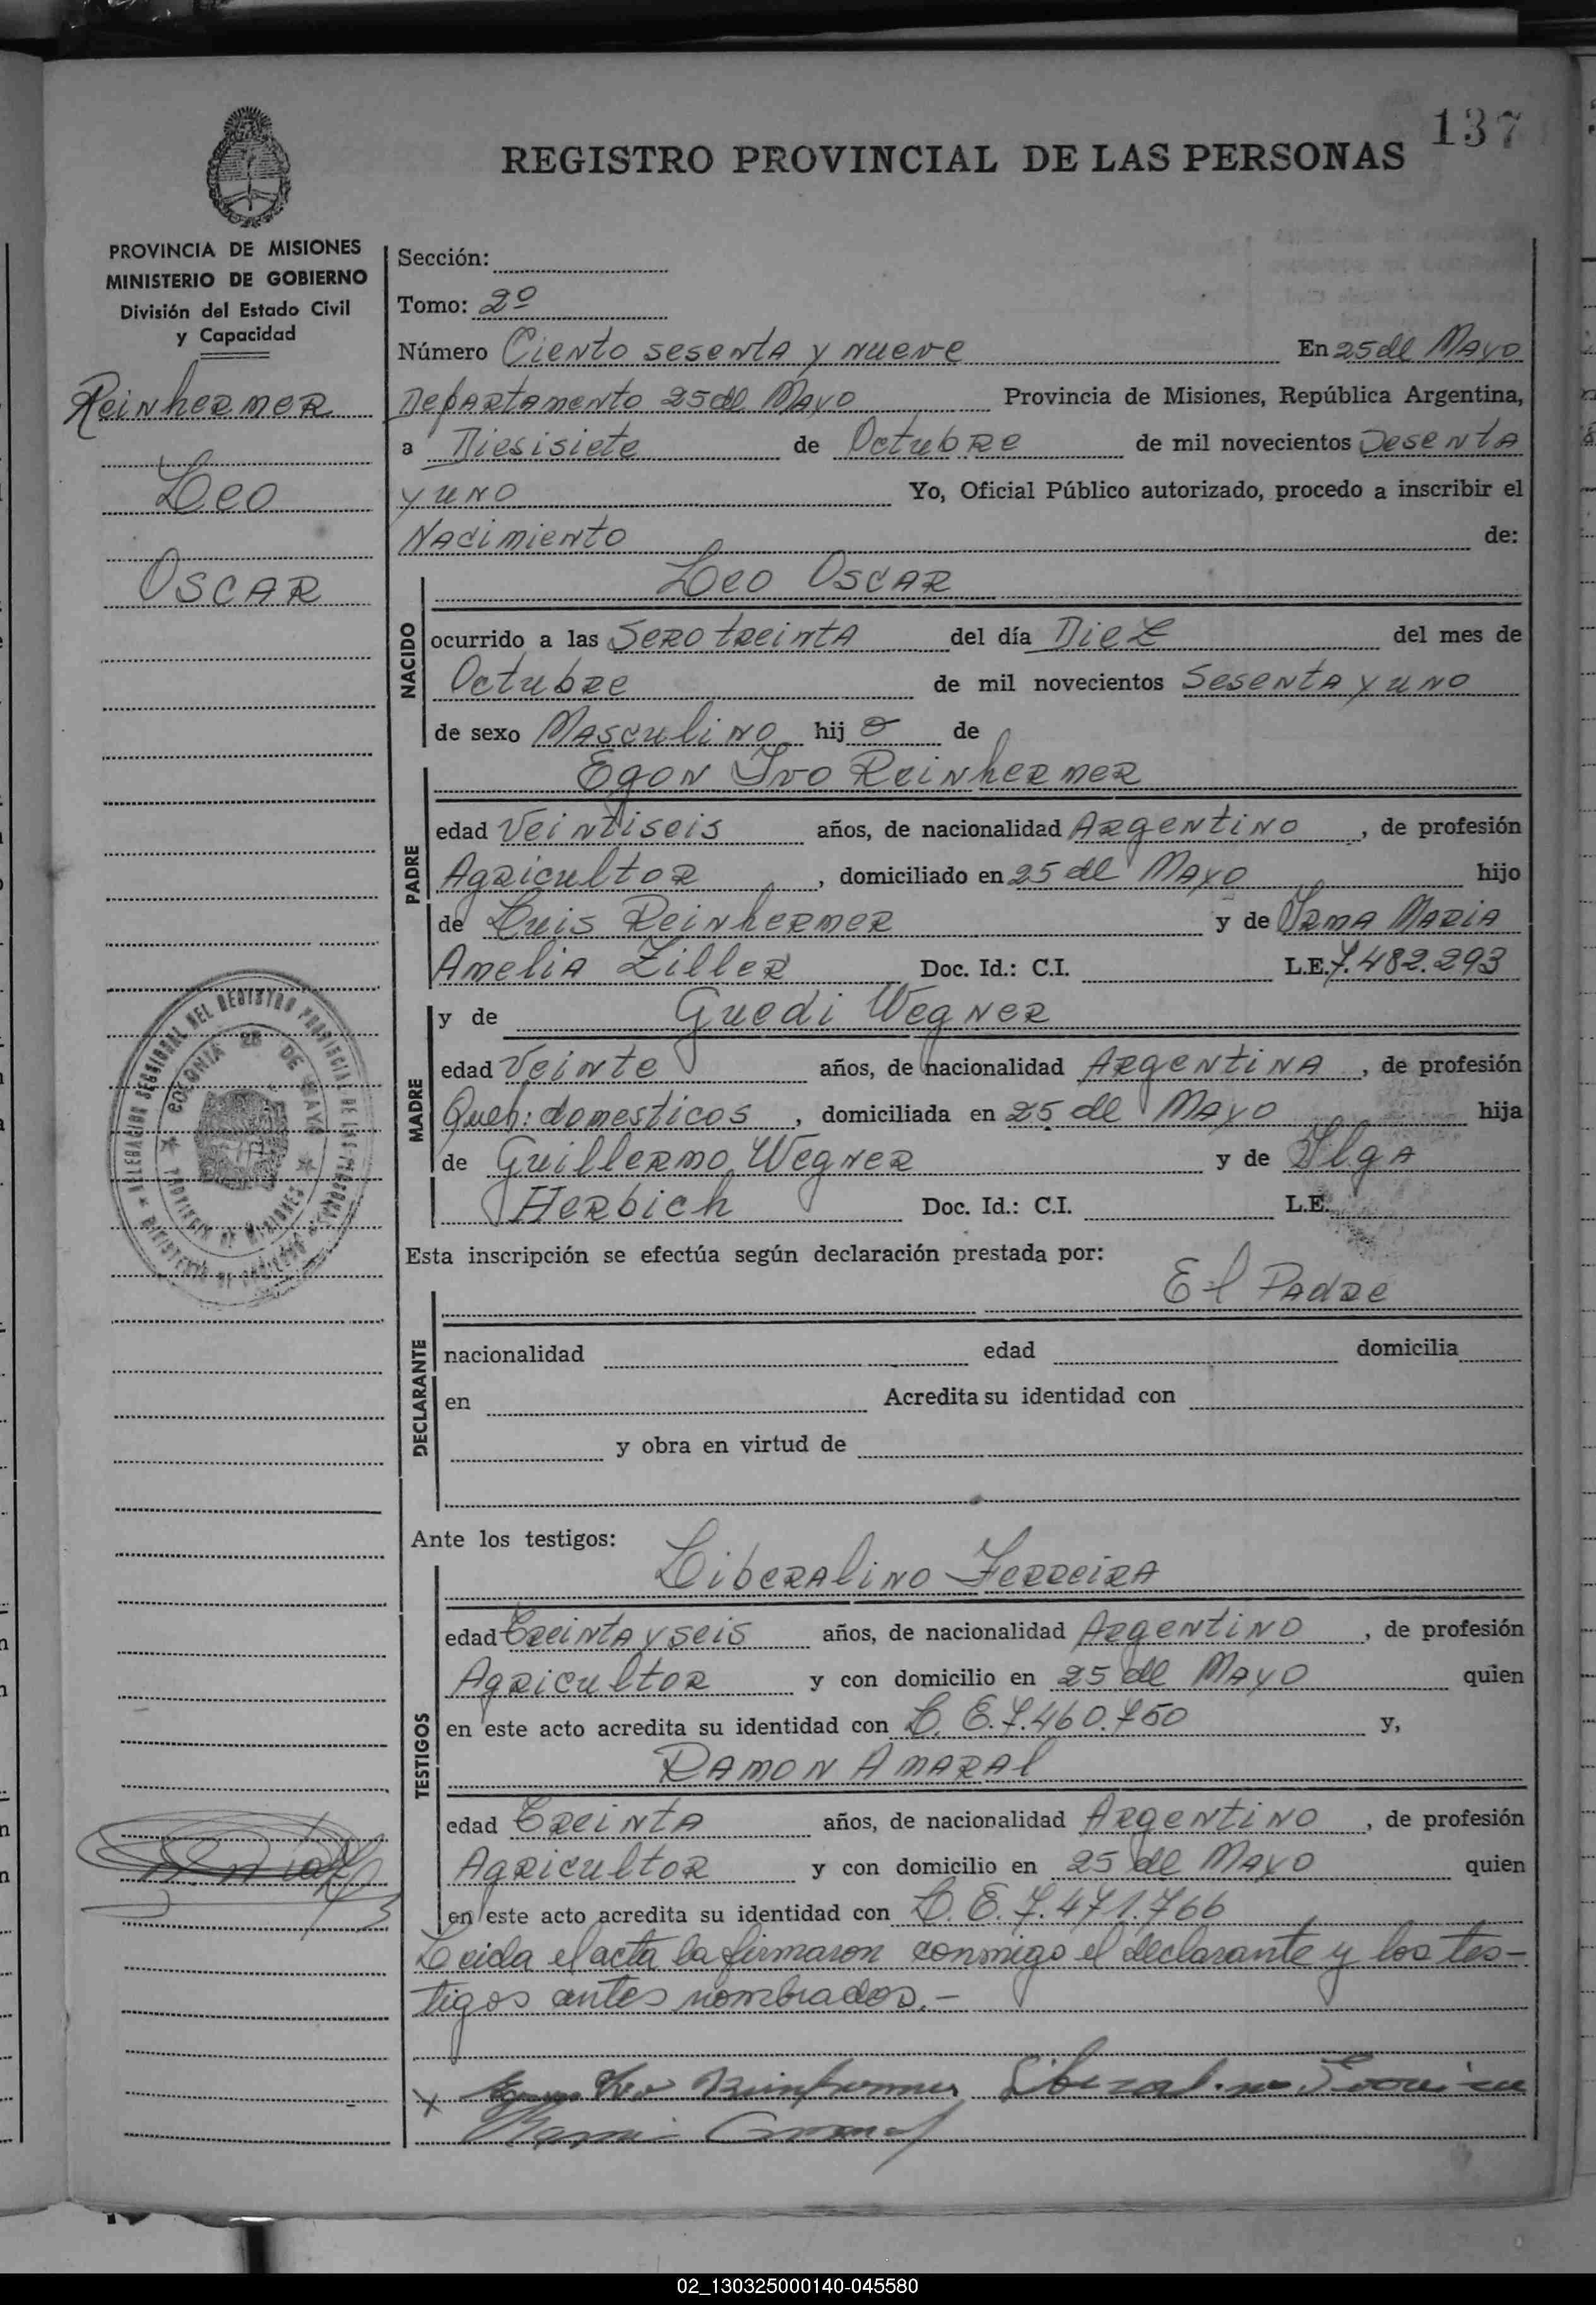 137
REGISTRO PROVINCIAL DE LAS PERSONAS
PROVINCIA DE MISIONES
MINISTERIO DE GOBIERNO
División del Estado Civil
y Capacidad
Reinhermer
Leo
Oscar
Sección:
Tomo: 2º
Número Ciento sesenta y nueve En 25 de Mayo
Departamento 25 de Mayo Provincia de Misiones, República Argentina,
a Diesisiete de Octubre de mil novecientos Sesenta
y uno Yo, Oficial Público autorizado, procedo a inscribir el
Nacimiento de:
NACIDO
Leo Oscar
ocurrido a las Sero treinta del día Diez del mes de
Octubre de mil novecientos Sesenta y uno
de sexo Masculino hij o de
PADRE
Egon Ivo Reinhermer
edad Veintiseis años, de nacionalidad Argentino, de profesión
Agricultor, domiciliado en 25 de Mayo hijo
de Luis Reinhermer y de Irma Maria
Amelia Ziller Doc. Id.: C.I. L.E. 7.482.293
MADRE
y de Guedi Wegner
edad Veinte años, de nacionalidad Argentina, de profesión
Queh: domesticos, domiciliada en 25 de Mayo hija
de Guillermo Wegner y de Ilga
Herbich Doc. Id.: C.I. L.E.
Esta inscripción se efectúa según declaración prestada por:
El Padre
DECLARANTE
nacionalidad edad domicilia
en Acredita su identidad con
y obra en virtud de
Ante los testigos:
TESTIGOS
Liberalino Ferreira
edad Treinta y seis años, de nacionalidad Argentino, de profesión
Agricultor y con domicilio en 25 de Mayo quien
en este acto acredita su identidad con L. E. 7.460.750 y,
Ramon Amaral
edad Treinta años, de nacionalidad Argentino, de profesión
Agricultor y con domicilio en 25 de Mayo quien
en este acto acredita su identidad con L. E. 7.471.766
Leida el acta la firmaron conmigo el declarante y los tes-
tigos antes nombrados.-
COLONIA 25 DE MAYO
PROVINCIA DE MISIONES
02_130325000140-045580